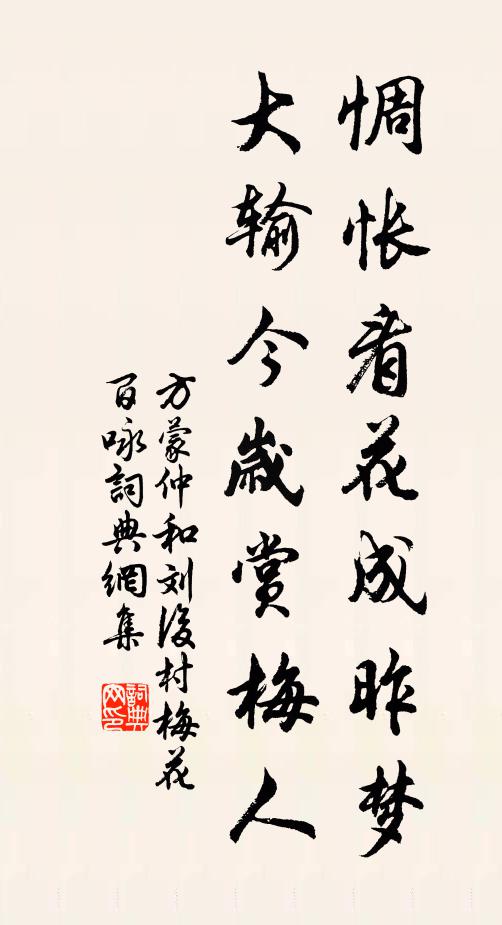 惆怅看花成昨梦
大输今歲赏梅人
方蒙仲和刘後村梅花
百咏詞典網集
詞典网印